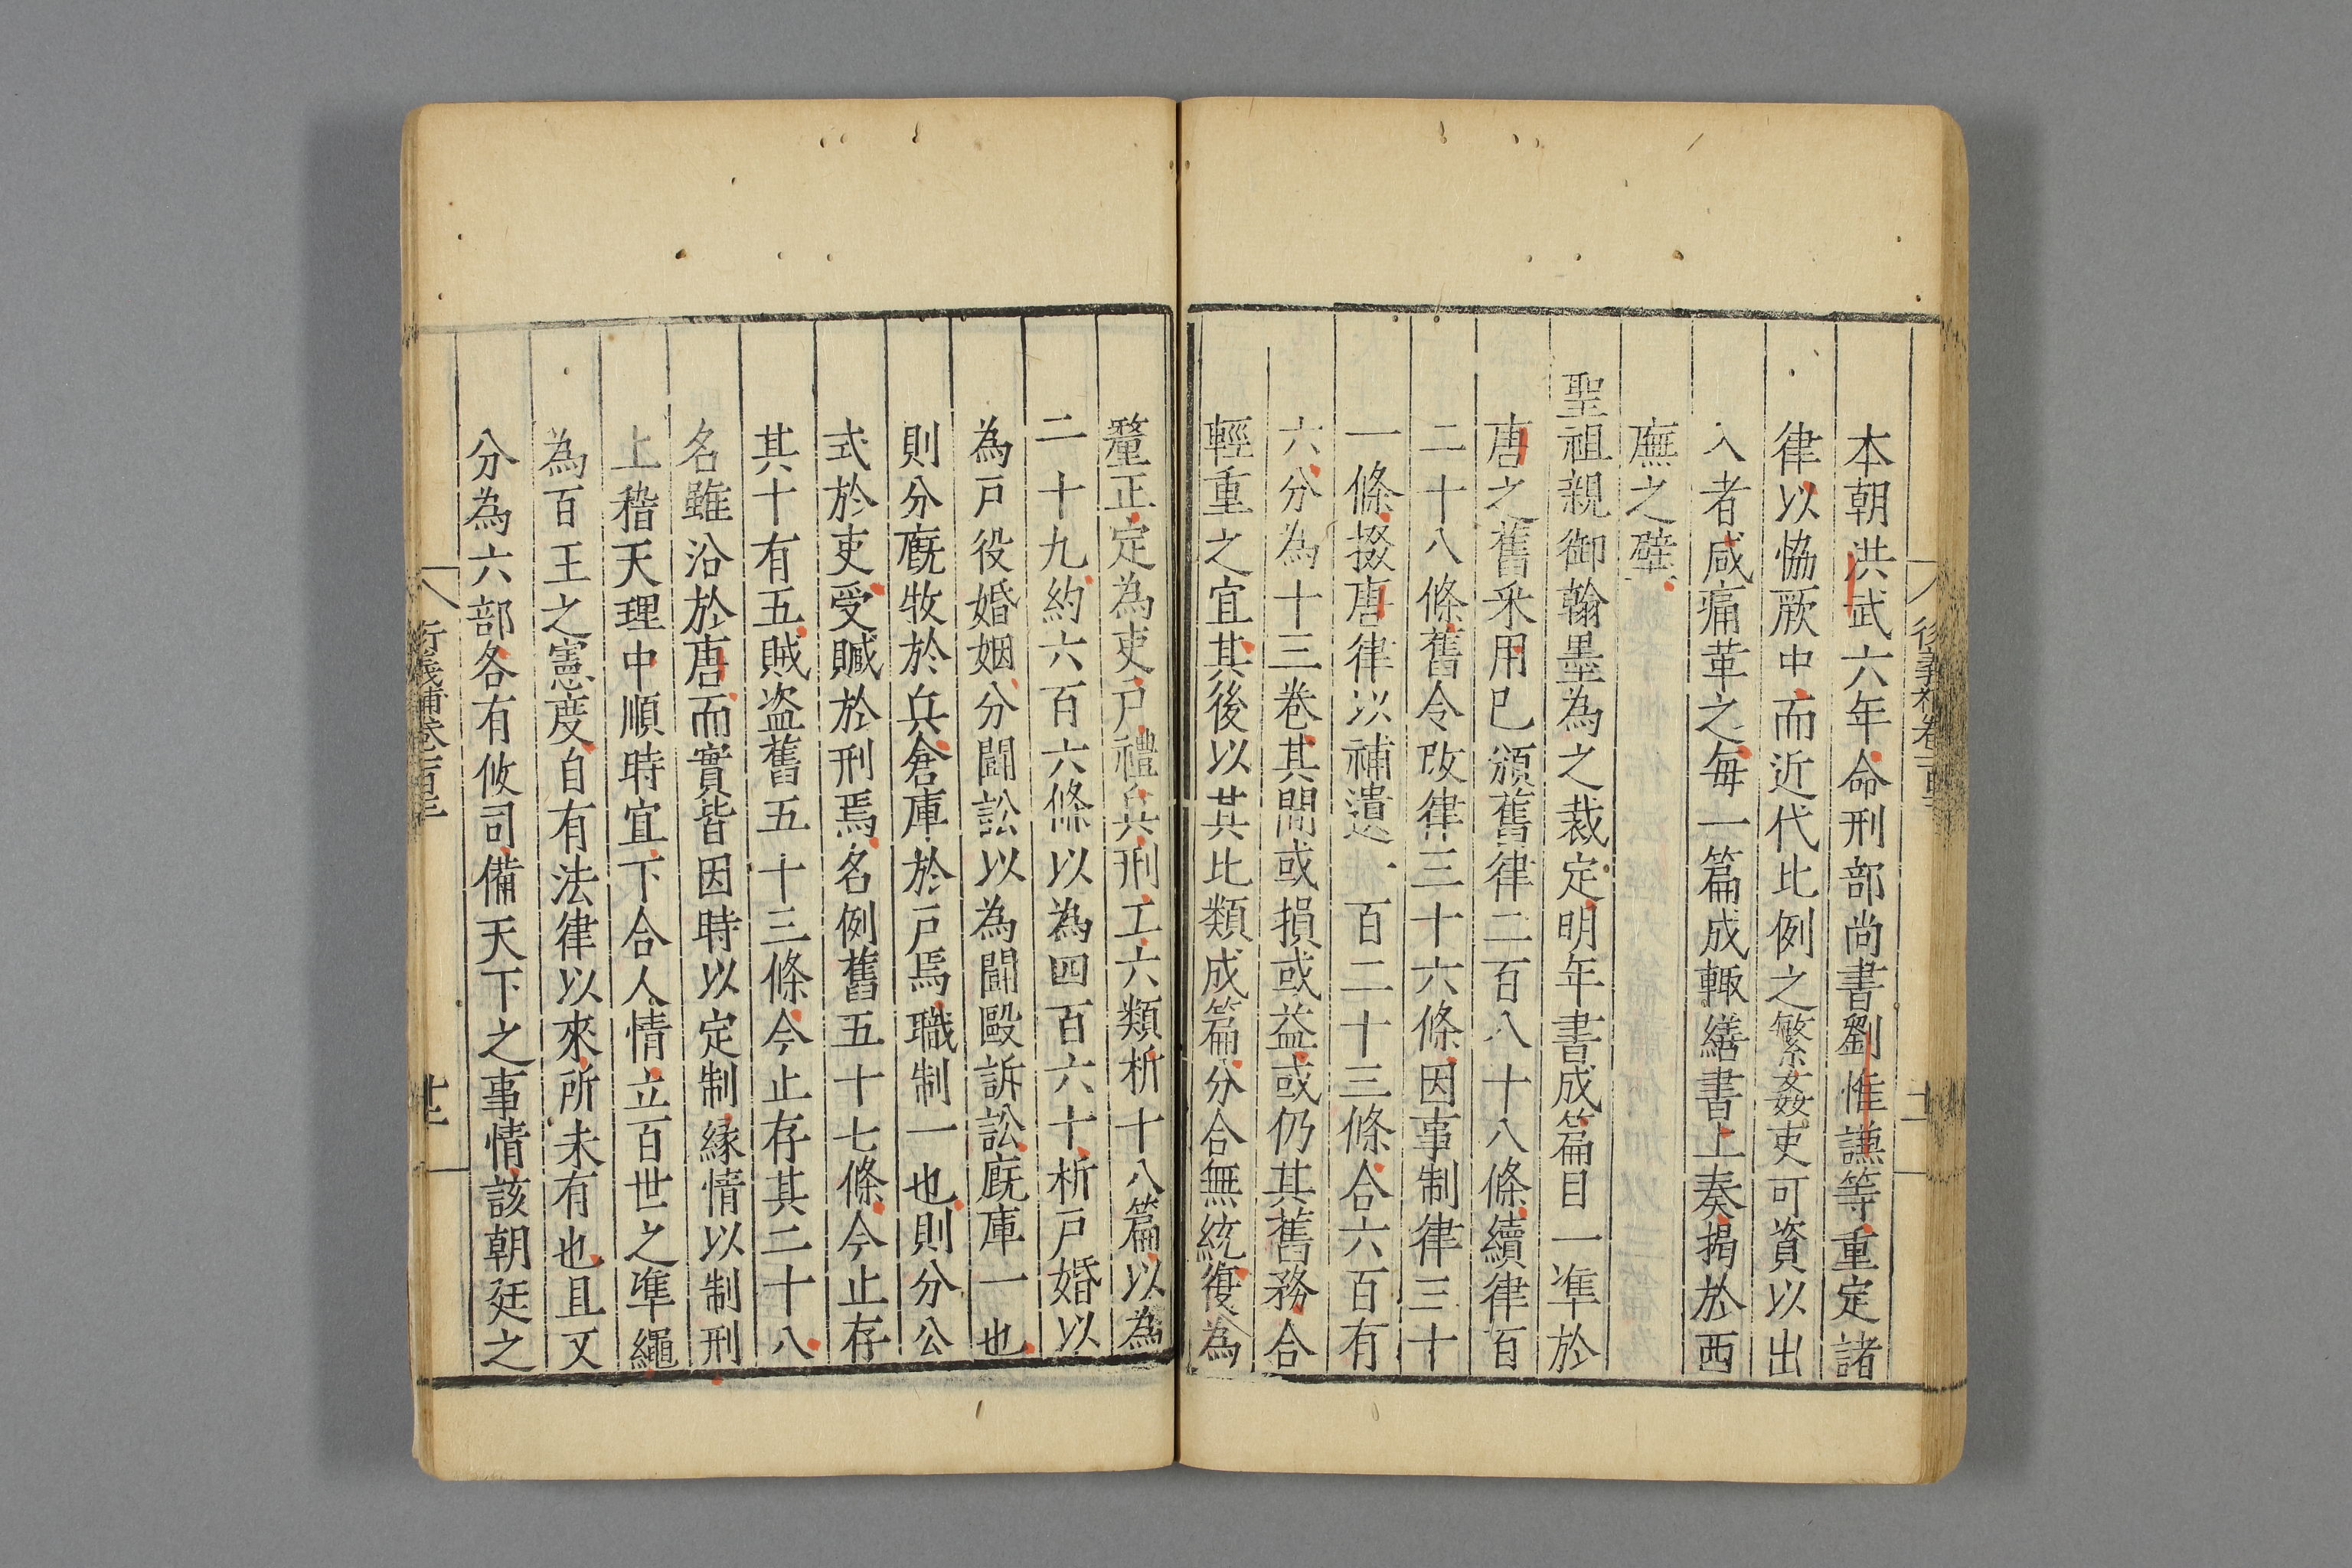 本朝洪武六年命刑部尚書劉惟謙等重定諸
律以協厥中而近代比例之繁姦吏可資以出
入者咸痛革之每一篇成輙繕書上奏揭於西
廡之壁
聖祖親御翰墨為之裁定明年書成篇目一準於
唐之舊采用已頒舊律二百八十八條續律百
二十八條舊令改律三十六條因事制律三十
一條掇唐律以補遺一百二十三條合六百有
六分為十三卷其間或損或益或仍其舊務合
輕重之宜其後以其比類成篇分合無統復為
釐正定為吏戶禮兵刑工六類析十八篇以為
二十九約六百六條以為四百六十析戶婚以
為戶役婚姻分鬪訟以為鬪毆訴訟廐庫一也
則分廐牧於兵倉庫於戶焉職制一也則分公
式於吏受贓於刑焉名例舊五十七條今止存
其十有五賊盜舊五十三條今止存其二十八
名雖沿於唐而實皆因時以定制緣情以制刑
上稽天理中順時宜下合人情立百世之準繩
為百王之憲度自有法律以來所未有也且又
分為六部各有攸司備天下之事情該朝廷之